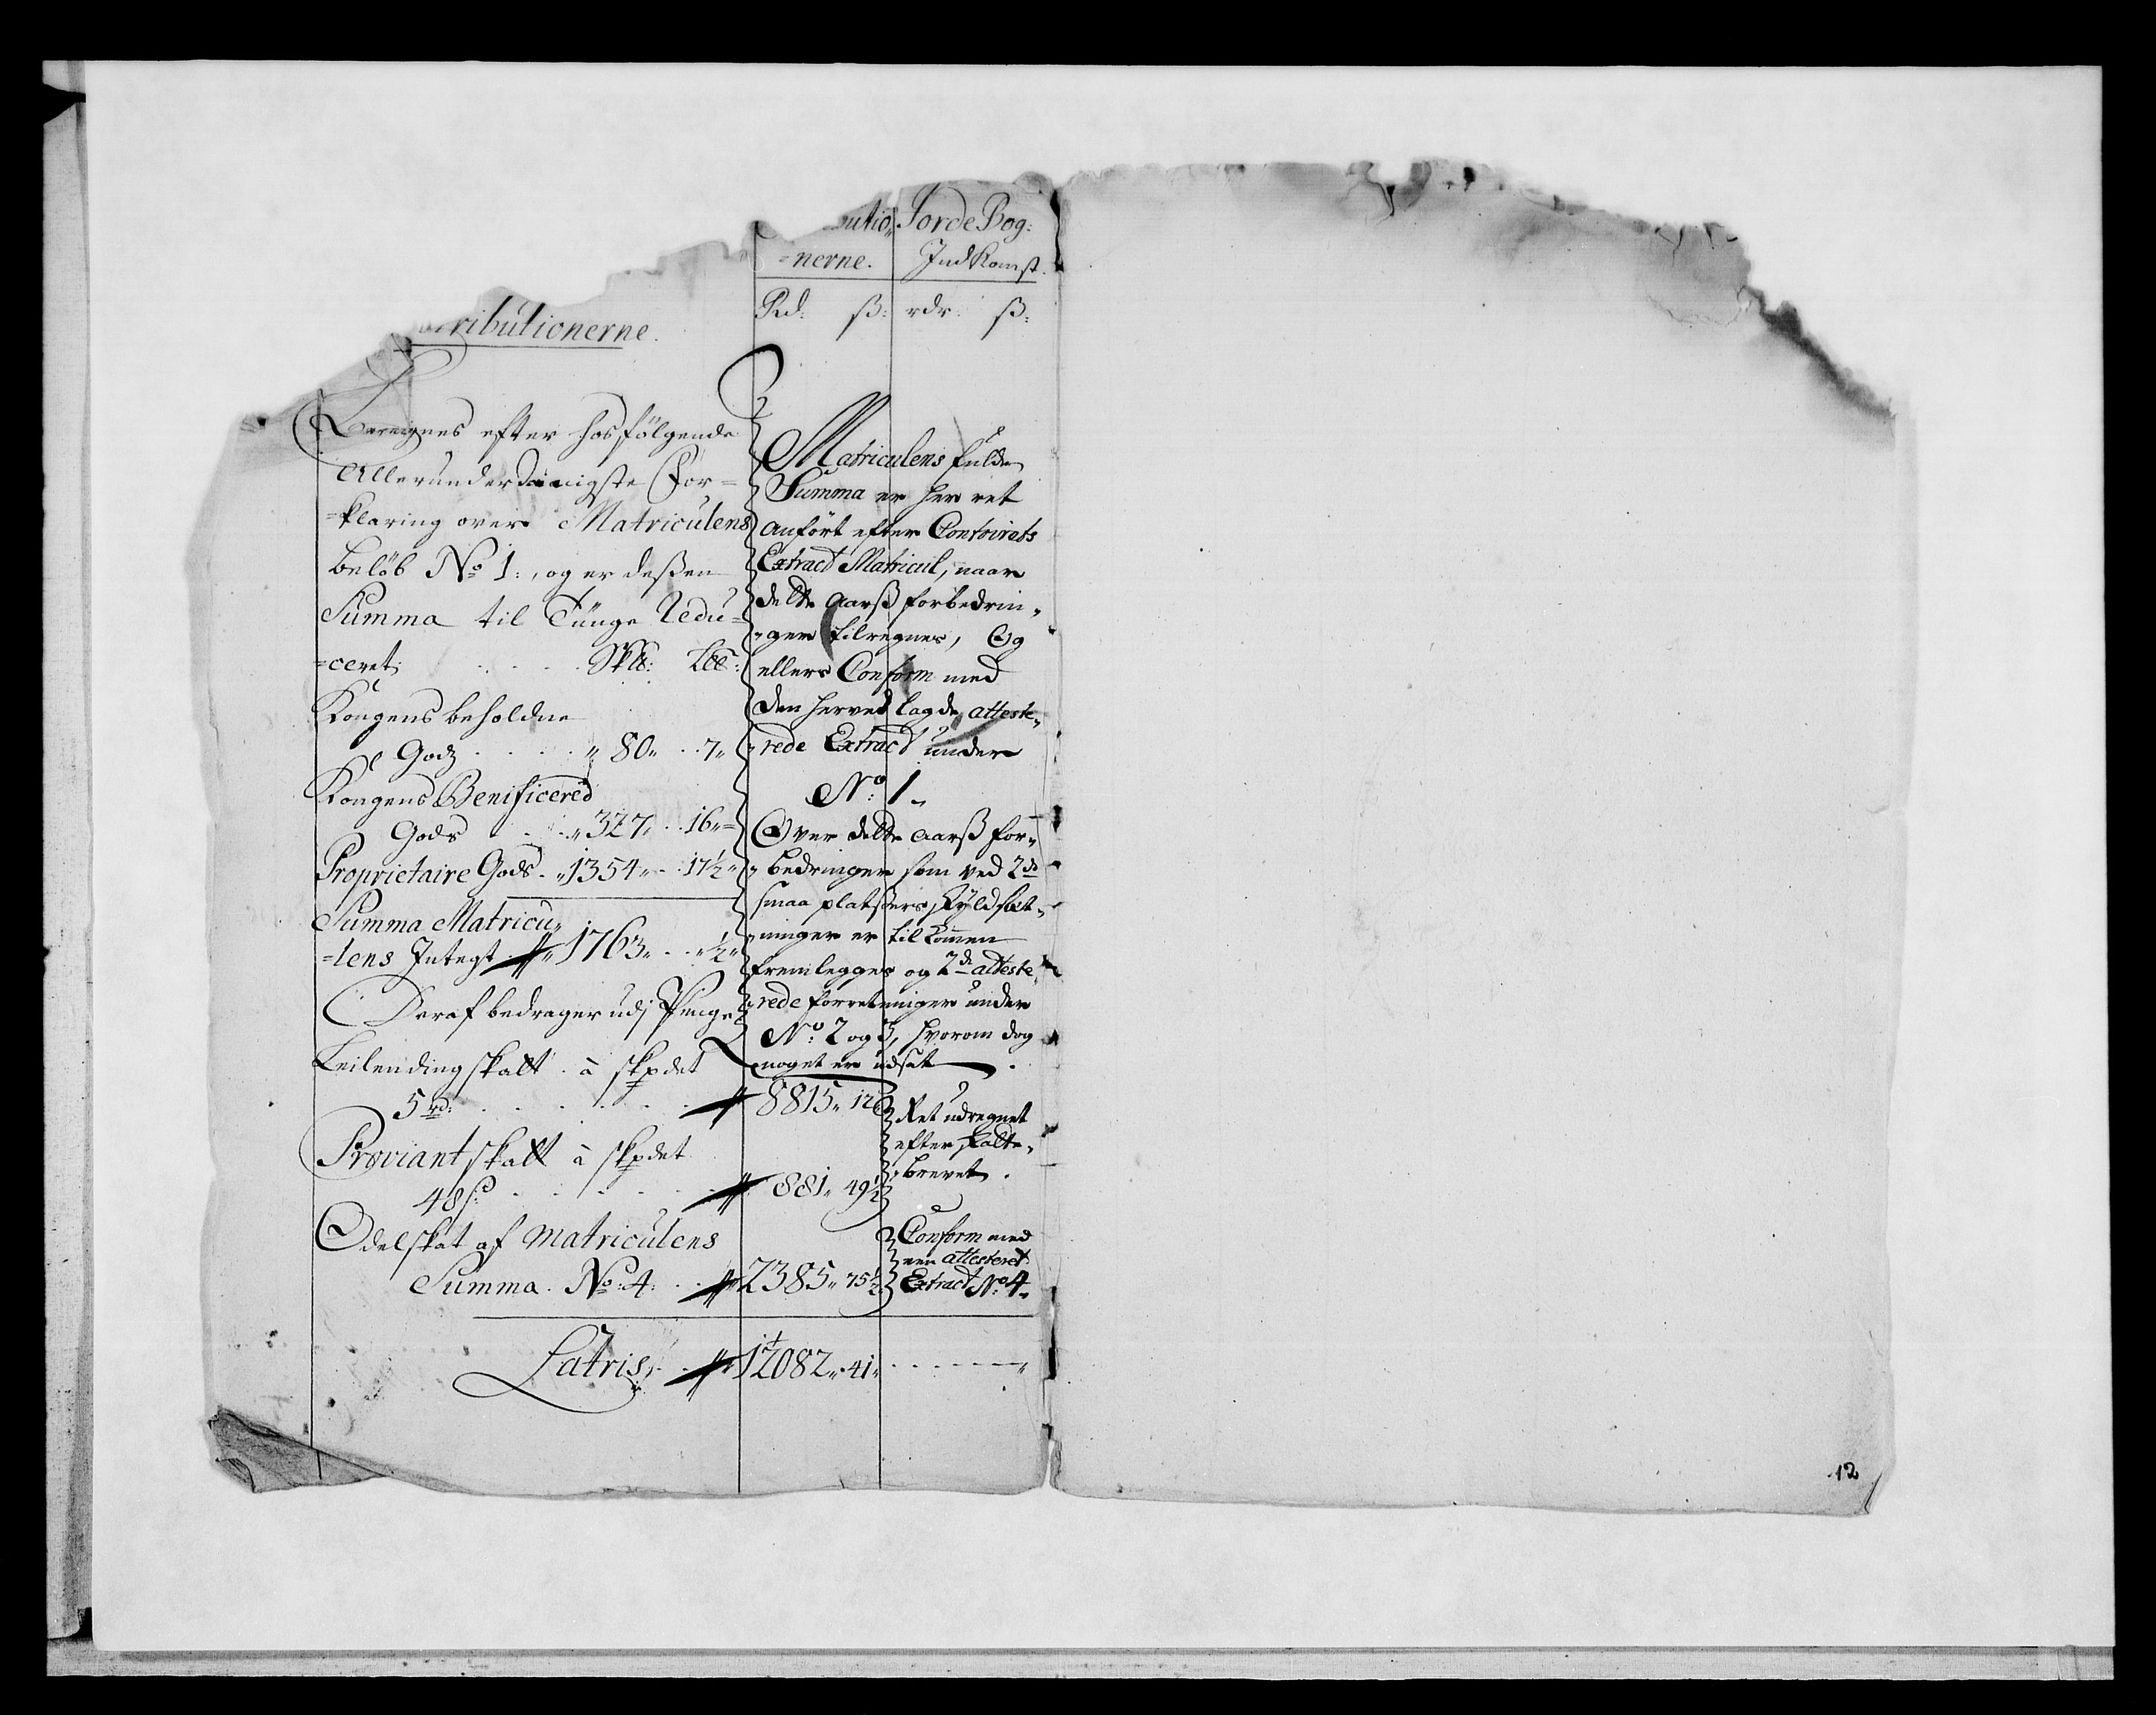 butio, Jorde Bog:
=nerne. Indkomst.
Rd: ß: rdr: ß:
tributionerne.
Beregnes efter hosfölgende
Allerunderdanigste For=
=klaring over Matriculens
Belöb No 1:, og er deßen
Summa til Tunge Redu=
=ceret; Sk℔: L℔:
Kongens beholdne
Godz 80 7
Kongens Benificered
Gods 327 16
Proprietaire Gods 1354 17½
Summa Matricu,,
=lens Integt 1763 ½
Deraf bedrager udj Penge
Leilending skatt à skpdet
5 rd: 8815 12
Proviant skatt à skpdet
48 ß 881 49½
Odelskat af Matriculens
Summa No: 4: 2385 75½
Latris 12082 41
Matriculens fulde
Summa er her ret
anfört efter Contoirets
Extract Matricul, naar
dette Aarß forbedrin,,
,,ger tilregnes, Og
ellers Conform med
den herved lagde atteste,,
,,rede Extract under
No: 1
Over dette Aarß for,,
,,bedringer som ved 2de
smaa platßers Skyldsæt,,
,,ninger er tilkommen
fremlegges og 2de atteste
rede forretninger under
No: 2 og 3, hvorom dog
noget er udsat
Ret udregnet
efter Skatte,,
,,brevet.
Conform med
een attesteret
Extract No: 4
12